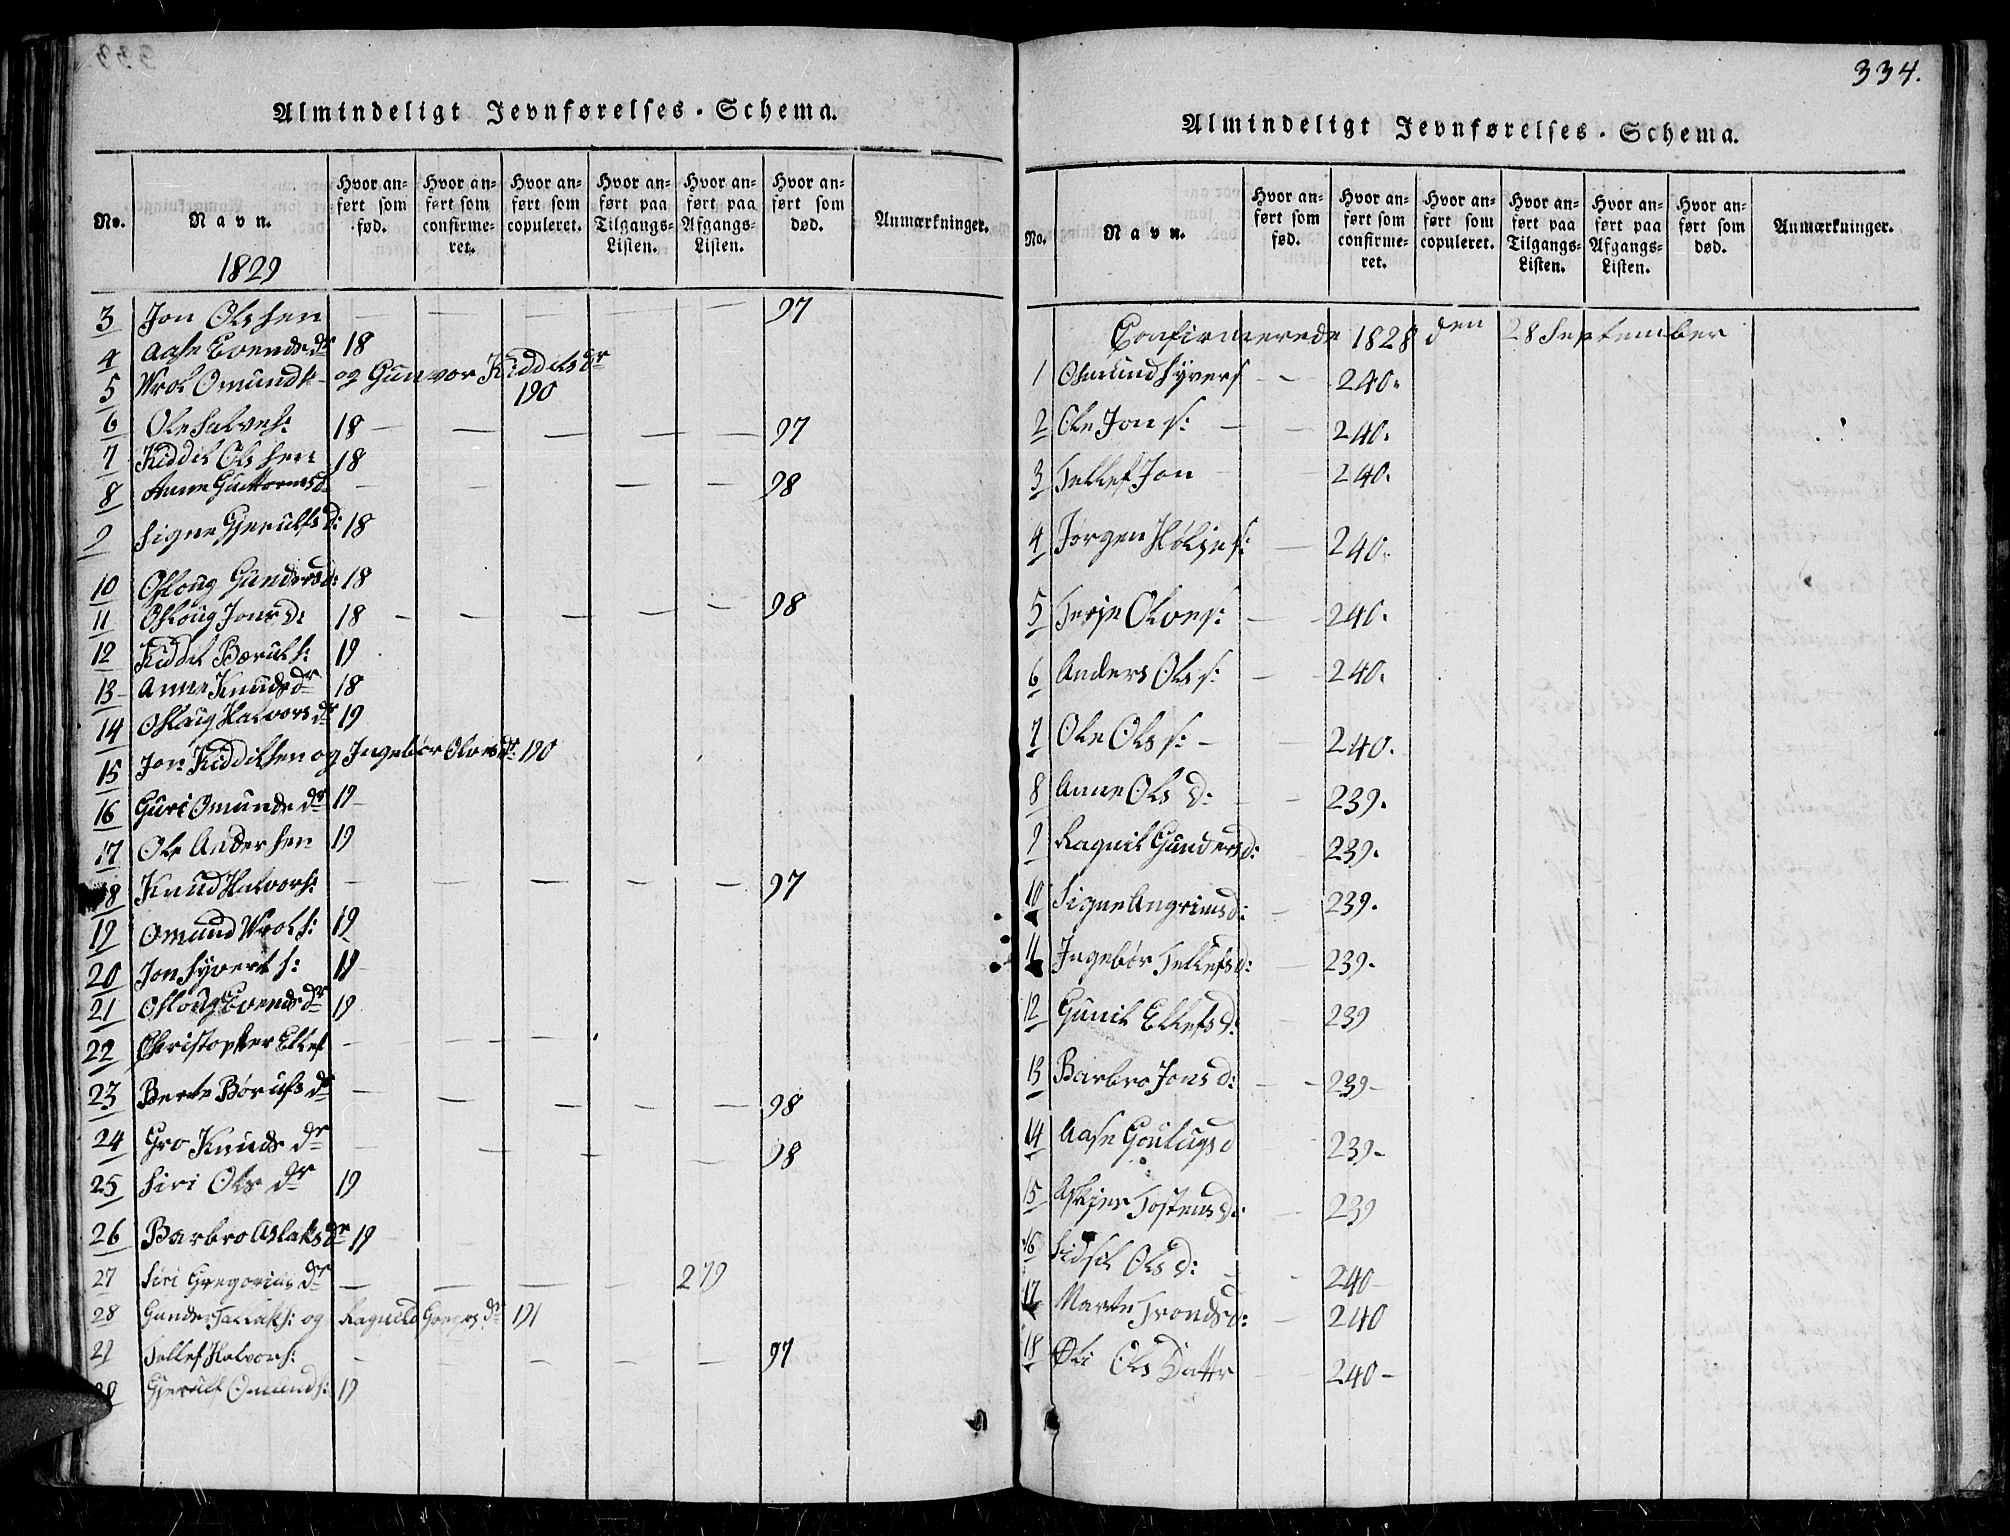 Almindeligt Jevnførelses-Schema.
No.
Navn.
Hvor anført som fød.
Hvor anført som confirmeret.
Hvor anført som copuleret.
Hvor anført paa Tilgangs-Listen.
Hvor anført paa Afgangs-Listen.
Hvor anført som død.
Anmærkninger.
1829
3 Jon Olssen — — — — — 97
4 Aase Evends dr 18
5 Wrol Omunds- og Gunvor Kiddilsdr 190
6 Ole Salves: 18 — — — — — 97
7 Kiddil Olssen 18
8 Anne Guttormsd — — — — — 98
9 Signe Gjerulfsd: 18
10 Osloug Gundersd: 18
11 Osloug Jonsd: 18 — — — — — 98
12 Kiddil Børuls: 19
13 Anne Knudsdr 18
14 Oslaug Halvorsdr 19
15 Jon Kiddilsen og Ingebør Olvesdr. 190
16 Guri Omundsdr 19
17 Ole Andersen 19
18 Knud Halvors: — — — — — 97
19 Omund Wrols: 19
20 Jon Syverts: 19
21 Osloug Evendsdr 19
22 Christopher Ellef — — — —
23 Berte Børufsdr — — — — — 98
24 Gro Knuds dr — — — — 98
25 Siri Ols dr 19
26 Barbro Aslaksdr 19
27 Siri Gregorius dr — — — — 279
28 Gunder Tallaks: og Ragnild Gregos dr 191
29 Tellef Halvors: — — — — 97
Gjerulf Omunds: 19
334.
Almindeligt Jevnførelses-Schema.
No.
Navn.
Hvor anført som fød.
Hvor anført som confirmeret.
Hvor anført som copuleret.
Hvor anført paa Tilgangs-Listen.
Hvor anført paa Afgangs-Listen.
Hvor anført som død.
Anmærkninger.
Confirmerede 1828 den 28 September
1 Osmund Syvers — — 240.
2 Ole Jons: — — 240.
3 Tellef Jon — 240.
4 Jørgen Holjes: — 240.
5 Terje Olves: — — 240.
6 Anders Ols s: — — 240.
7 Ole Ols s: — — 240.
8 Anne Ols d: — — 239.
9 Ragnil Gundersd: — 239.
10 Signe Angrimsd: — 239.
11 Ingebør Tellefsd: — 239.
12 Gunil Ellefsd: — 239
13 Barbro Jonsd: — — 239-
14 Aase Goulugsd 239-
15 Askjer Tostensd: — 239
16 Sidsil Ols d: — — 240-
17 Marte Trondsd: — 240
18 Ols Dattr — — 240-